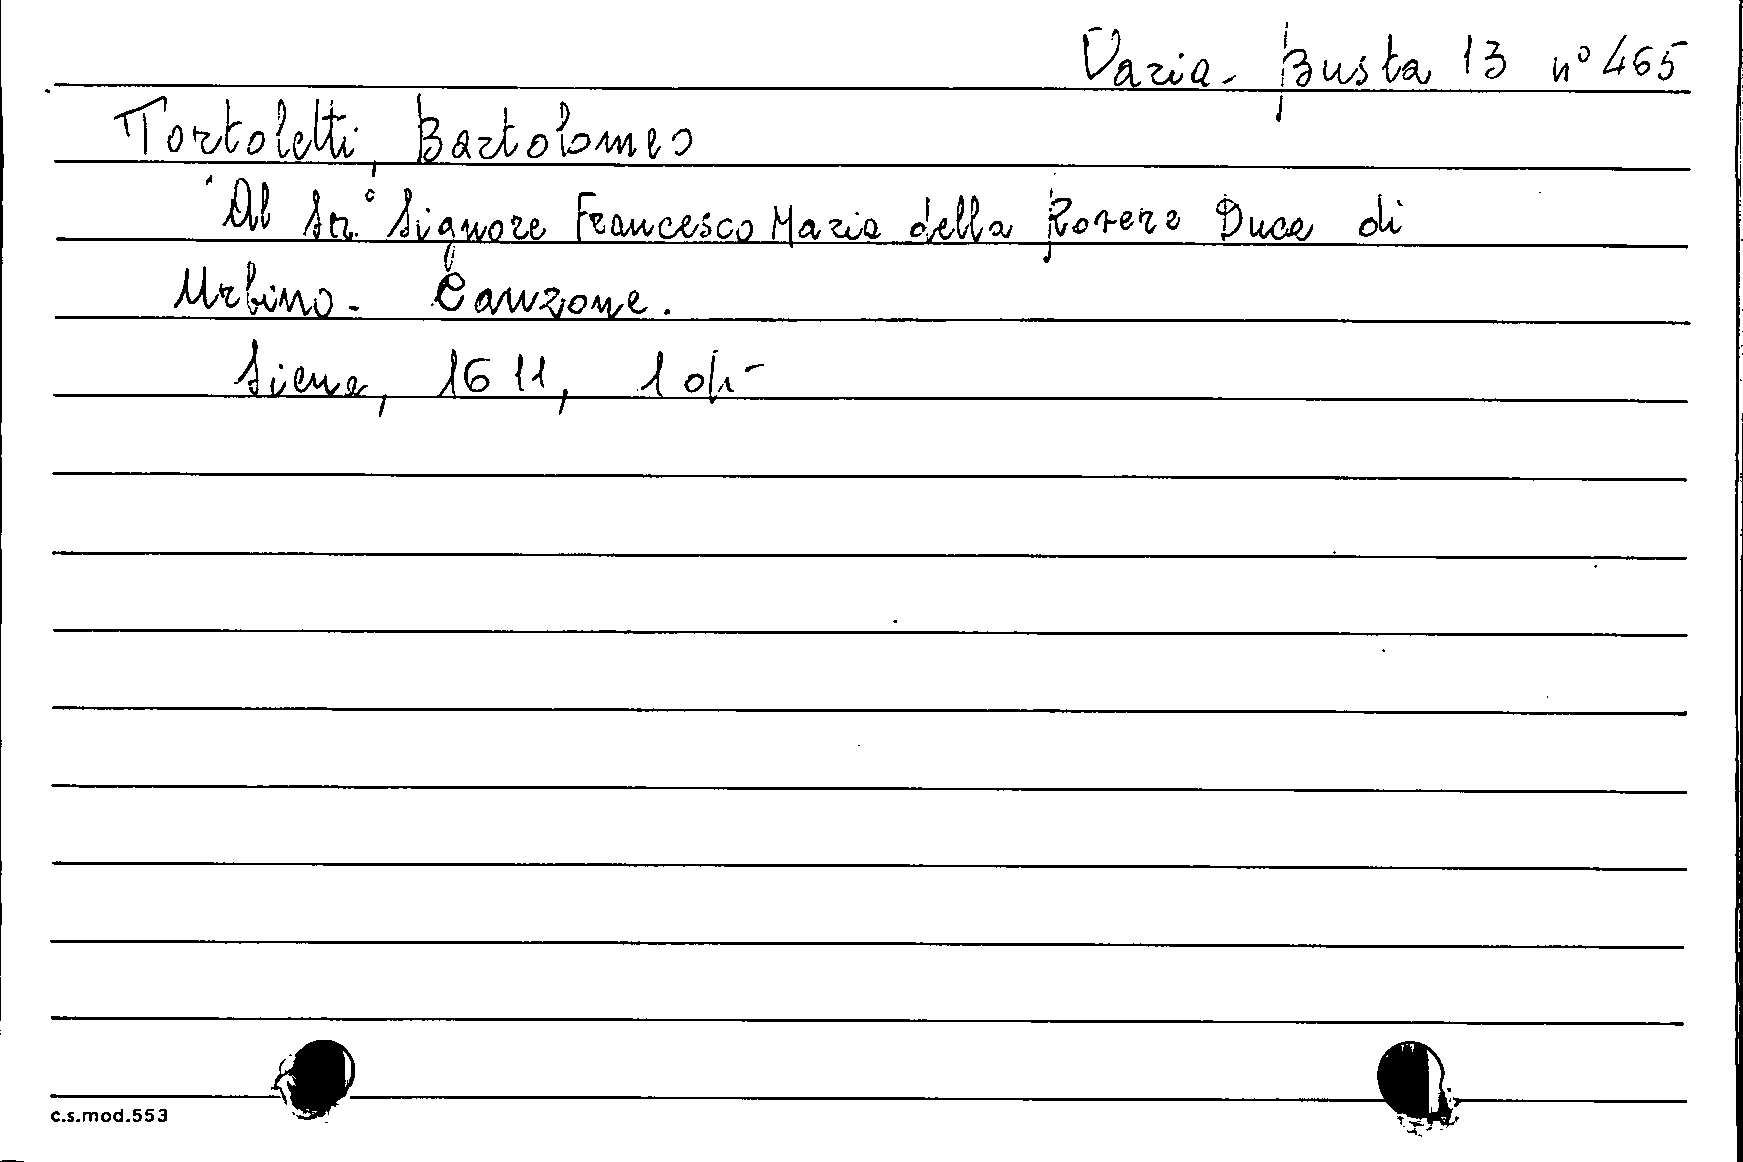 Varia - Busta 13 n° 465
Tortoletti, Bartolomeo
Al Sr.° Signore Francesco Maria della Rovere Duca di
Urbino - Canzone.
Siena, 1611, 1
c.s.mod.553